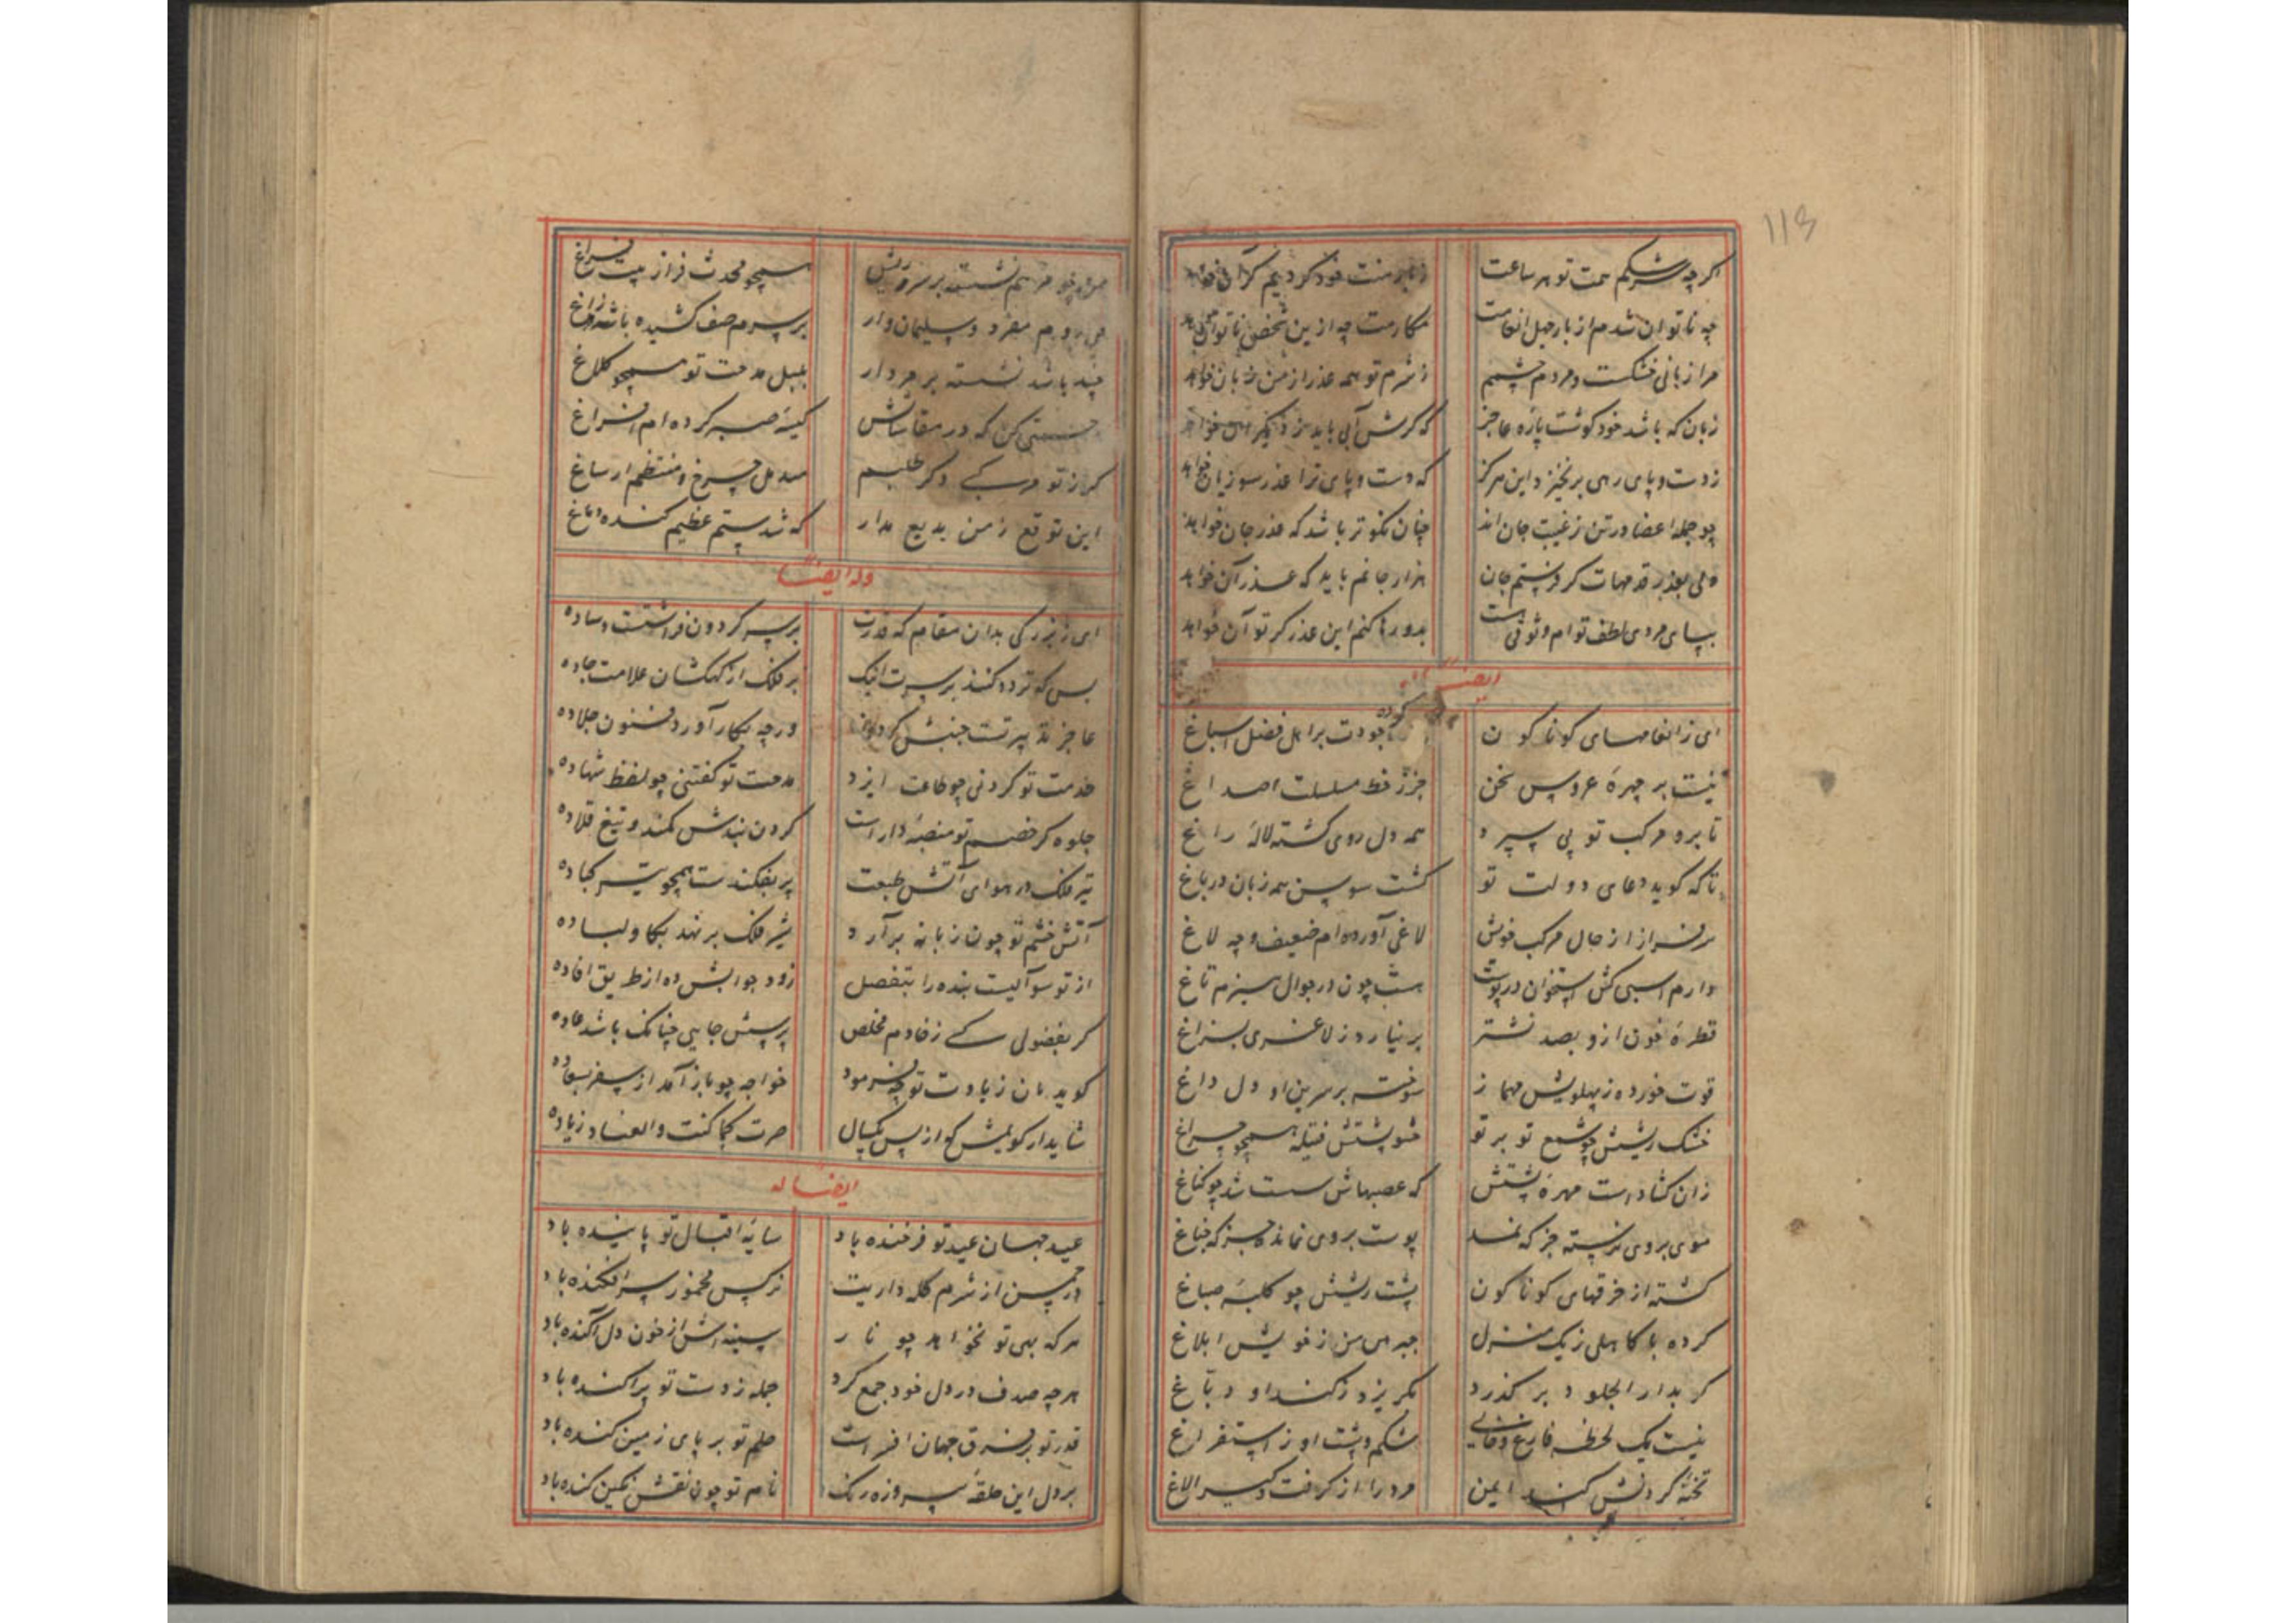 118
اکرچه شرمکم سمت تو هر ساعت زبار منت خود کردنم کران خواهد
چه ناتوان شدم از بار حمل انعامت مکارمت چه ازین شخص ناتوان خواهد
مرا زبانی خشکست و مردم چشمم ز شرم تو همه عذر از من زبان خواهد
زبان که باشد خود کوشت پاره عاجز که کرش آبی باید از دیکران خواهد
زدست و پای رهی برنخیزد این هرکز که دست و پای ترا عذر سو زیان خواهد
چو جمله اعضا در تن زغیب جان اند چنان نکوتر باشد که عذر جان خواهد
ولی بعذر قدمهات کر فرستم جان هزار جانم باید که عذر آن خواهد
بپای مردی لطف توام وثوقی است بدو رها کنم این عذر کر تو آن خواهد
ایضا له
ای ز انعامهای کوناکون کرده جودت بر اهل فضل اسباغ
نیست بر چهرهٔ عروس سخن جز ز خط مسلسلت اصداغ
تا برو مرکب تو پی سپرد همه دل روی کشته لالهٔ راغ
تا که کوید دعای دولت تو کشت سوسن همه زبان در باغ
سرفراز از حال مرکب خویش لاغی آورده ام ضعیف و چه لاغ
دارم اسبی کش استخوان در پوست هست چون در جوال هیزم تاغ
قطرهٔ خون ازو بصد نشتر بر نیارد ز لاغری بزاغ
قوت خورده ز پهلویش مهماز سوخته بر سرین او دل داغ
خشک ریشش چو شمع تو بر تو حشو پشتش فتیله همچو چراغ
زان کشادست مهرهٔ پشتش که عصبهاش سست شد چو کناغ
موی بروی نرسته جز که نمد پوست بروی نمانده جز که جناغ
کشته از خرقهای کوناکون پشت ریشش چو کلبهٔ صباغ
کرده با کاهلی زیک منزل جبرهی من ز خویش ابلاغ
کر بدار الجلود بر کذرد بکریزد زکند او دباغ
نیست یک لحظه فارغ و خالی شکم و پشت او ز استفراغ
تختهٔ کردنش کند ایمن مرد را از کرفت و کیر الاغ
نشسته بر سر ریش همچو محدث فراز بیت فراغ
می روم مفرد و سلیمان وار بر سرم صف کشیده باشد زاغ
چند باشد نشسته بر مردار بلبل مدحت تو همچو کلاغ
حسبتی کن که در مقاساتش کیسهٔ صبر کرده ام افراغ
کر از تو مرکبی دکر طلبم
این توقع زمن بدیع مدار که شد ستم عظیم کنده دماغ
وله ایضا
ای ز بزرکی بدان مقام که قدرت بر سر کردون فراشتست وساده
بس که تردد کنند بر سرت آنک بر فلک از کهکشان علامت جاده
عاجز تدبیر تست جنبش کردون ورچه بکار آورد فنون جلاده
خدمت تو کردنی چو طاعت ایزد مدحت تو کفتنی چو لفظ شهاده
جلوه کر خصم تو منصبهٔ دار است کردن بندش کمند و تیغ قلاده
تیر فلک در هوای آتش طبعت پر بفکندست همچو تیر کباده
آتش خشم تو چون زبانه برآرد شیر فلک بر نهد بکاو لباده
از تو سوآلیست بنده را بتفضل زود جوابش ده از طریق افاده
کر بفضولی کسی زخادم مخلص پرسش جایی چنانک باشد عاده
کوید هان زیادت تو چه فرمود خواجه چو باز آمد از سفر بسعاده
شاید ار کویمش کو از پس یکسال صرت کما کنت والعناد زیاده
ایضا له
عید جهان عید تو فرخنده باد سایهٔ اقبال تو پاینده باد
در چمن از شرم کله داریت نرکس مخمور سرافکنده باد
هر که بهی تو نخواهد چو نار سینه اش از خون دل آکنده باد
هرچه صدف در دل خود جمع کرد جمله زدست تو پراکنده باد
قدر تو بر فرق جهان افسر است حلم تو بر پای زمین کنده باد
بر دل این حلقهٔ پیروزه رنک نام تو چون نقش نکین کنده باد